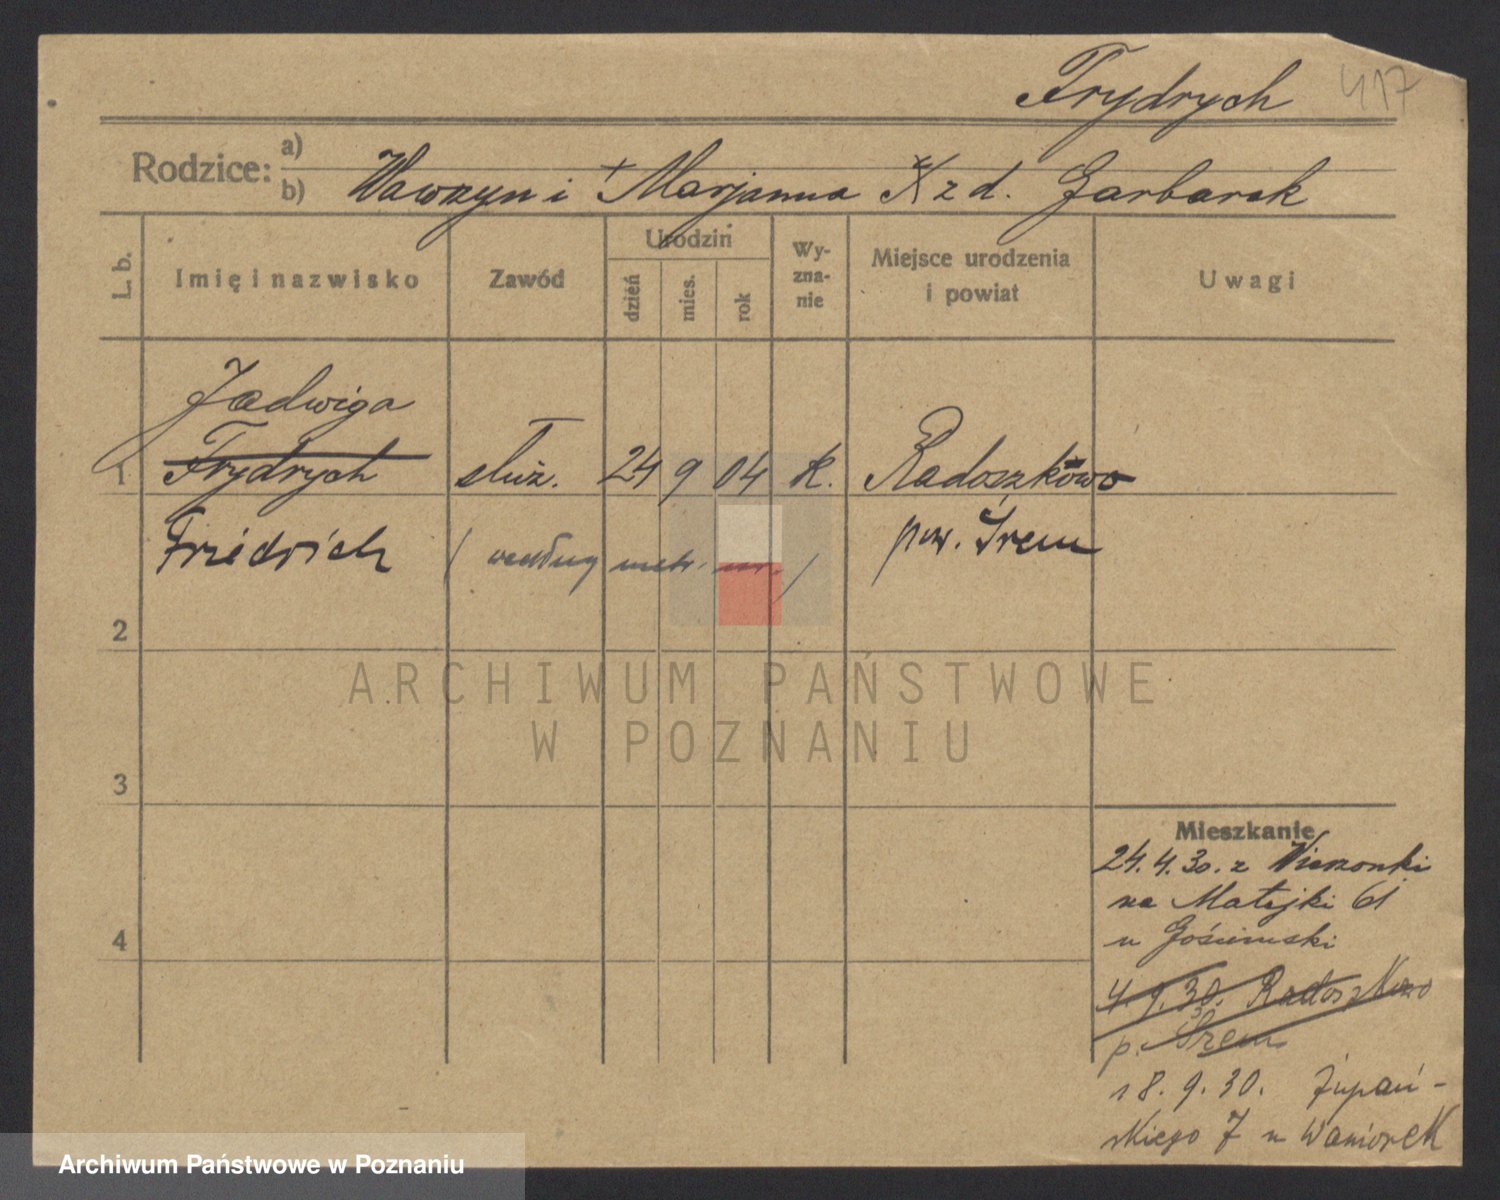 Frydrych 417
Rodzice: a)
b) Wawrzyn i + Marjanna X z d. Garbarek
L. b. Imię i nazwisko Zawód Urodziń dzień mies. rok Wy-zna-nie Miejsce urodzenia i powiat Uwagi
Jadwiga
1 Frydrych służ. 24 9 04 k. Radoszkowo
Friedrich (według metr. ur.) pow. Śrem
2
ARCHIWUM PAŃSTWOWE
W POZNANIU
3
Mieszkanie
24.4.30. z Wierzonki
na Matejki 61
u
4
4.9.30. Radoszkowo
p. Śrem
18.9.30. Żupań-
skiego 7 u Waniorek
Archiwum Państwowe w Poznaniu